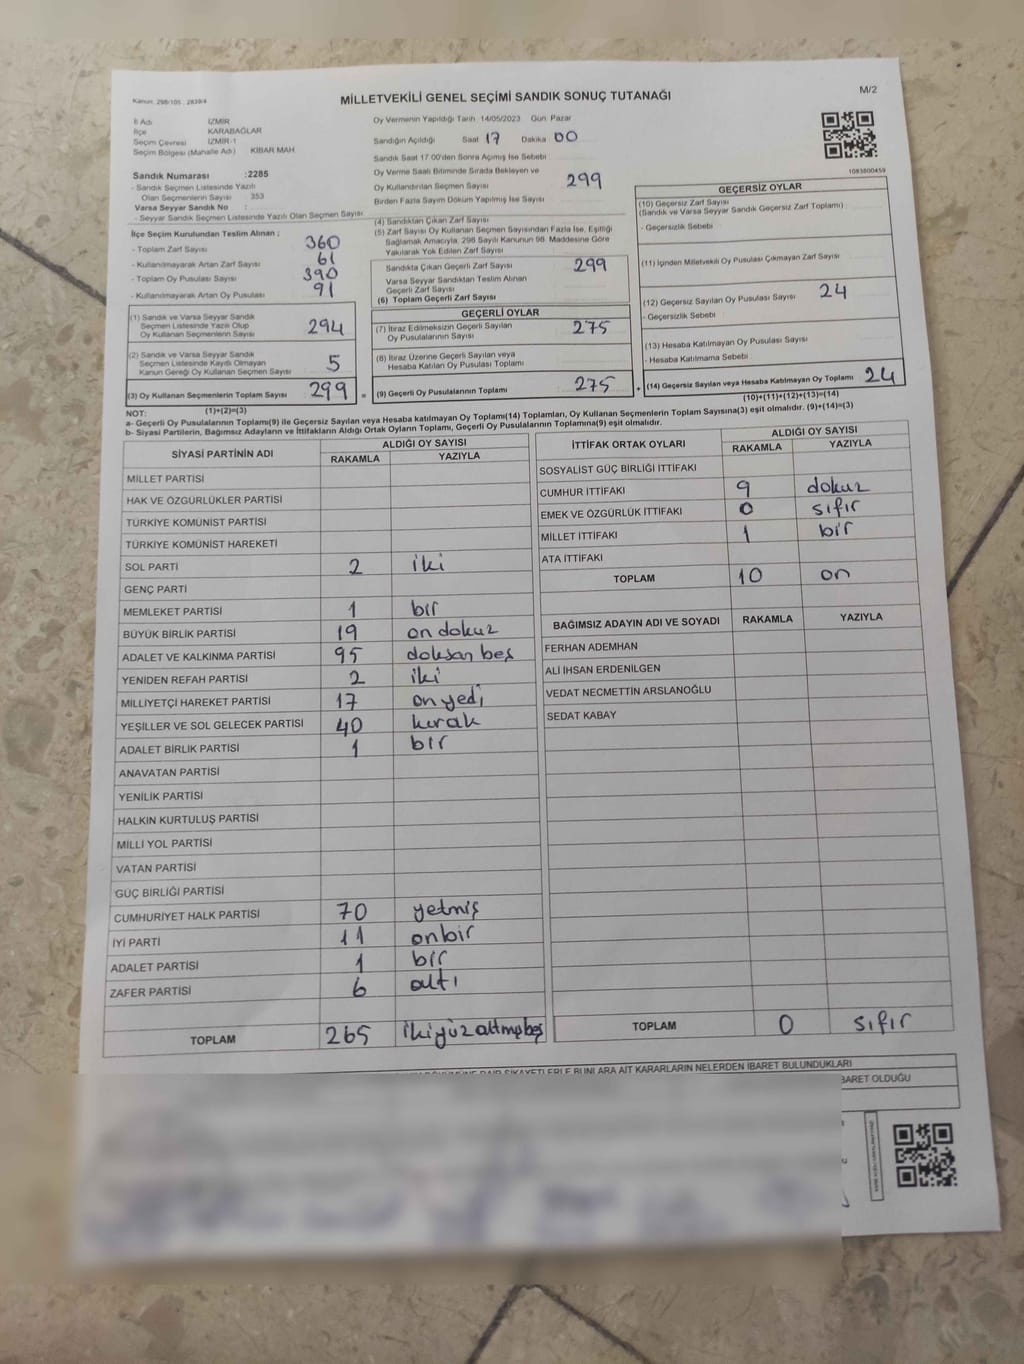 Kanun: 298/105 ; 2839/4
MİLLETVEKİLİ GENEL SEÇİMİ SANDIK SONUÇ TUTANAĞI
M/2
İl Adı İZMİR
İlçe KARABAĞLAR
Seçim Çevresi İZMİR-1
Seçim Bölgesi (Mahalle Adı) KİBAR MAH.
Sandık Numarası :2285
- Sandık Seçmen Listesinde Yazılı
Olan Seçmenlerin Sayısı 353
Varsa Seyyar Sandık No :
- Seyyar Sandık Seçmen Listesinde Yazılı Olan Seçmen Sayısı
Oy Vermenin Yapıldığı Tarih 14/05/2023 Gün Pazar
Sandığın Açıldığı Saat 17 Dakika 00
Sandık Saat 17.00'den Sonra Açılmış İse Sebebi
Oy Verme Saati Bitiminde Sırada Bekleyen ve
Oy Kullandırılan Seçmen Sayısı 299
Birden Fazla Sayım Döküm Yapılmış İse Sayısı
1083800459
İlçe Seçim Kurulundan Teslim Alınan ;
- Toplam Zarf Sayısı 360
- Kullanılmayarak Artan Zarf Sayısı 61
- Toplam Oy Pusulası Sayısı 390
- Kullanılmayarak Artan Oy Pusulası 91
(1) Sandık ve Varsa Seyyar Sandık
Seçmen Listesinde Yazılı Olup
Oy Kullanan Seçmenlerin Sayısı 294
(2) Sandık ve Varsa Seyyar Sandık
Seçmen Listesinde Kayıtlı Olmayan
Kanun Gereği Oy Kullanan Seçmen Sayısı 5
(3) Oy Kullanan Seçmenlerin Toplam Sayısı 299
(1)+(2)=(3)
(4) Sandıktan Çıkan Zarf Sayısı
(5) Zarf Sayısı Oy Kullanan Seçmen Sayısından Fazla İse, Eşitliği
Sağlamak Amacıyla, 298 Sayılı Kanunun 98. Maddesine Göre
Yakılarak Yok Edilen Zarf Sayısı
Sandıkta Çıkan Geçerli Zarf Sayısı 299
Varsa Seyyar Sandıktan Teslim Alınan
Geçerli Zarf Sayısı
(6) Toplam Geçerli Zarf Sayısı
GEÇERLİ OYLAR
(7) İtiraz Edilmeksizin Geçerli Sayılan
Oy Pusulalarının Sayısı 275
(8) İtiraz Üzerine Geçerli Sayılan veya
Hesaba Katılan Oy Pusulası Toplamı
= (9) Geçerli Oy Pusulalarının Toplamı 275
GEÇERSİZ OYLAR
(10) Geçersiz Zarf Sayısı
(Sandık ve Varsa Seyyar Sandık Geçersiz Zarf Toplamı)
- Geçersizlik Sebebi
(11) İçinden Milletvekili Oy Pusulası Çıkmayan Zarf Sayısı
(12) Geçersiz Sayılan Oy Pusulası Sayısı 24
- Geçersizlik Sebebi
(13) Hesaba Katılmayan Oy Pusulası Sayısı
- Hesaba Katılmama Sebebi
+ (14) Geçersiz Sayılan veya Hesaba Katılmayan Oy Toplamı 24
(10)+(11)+(12)+(13)=(14)
NOT:
a- Geçerli Oy Pusulalarının Toplamı(9) ile Geçersiz Sayılan veya Hesaba katılmayan Oy Toplamı(14) Toplamları, Oy Kullanan Seçmenlerin Toplam Sayısına(3) eşit olmalıdır. (9)+(14)=(3)
b- Siyasi Partilerin, Bağımsız Adayların ve İttifakların Aldığı Ortak Oyların Toplamı, Geçerli Oy Pusulalarının Toplamına(9) eşit olmalıdır.
SİYASİ PARTİNİN ADI ALDIĞI OY SAYISI
RAKAMLA YAZIYLA
MİLLET PARTİSİ
HAK VE ÖZGÜRLÜKLER PARTİSİ
TÜRKİYE KOMÜNİST PARTİSİ
TÜRKİYE KOMÜNİST HAREKETİ
SOL PARTİ 2 iki
GENÇ PARTİ
MEMLEKET PARTİSİ 1 bir
BÜYÜK BİRLİK PARTİSİ 19 on dokuz
ADALET VE KALKINMA PARTİSİ 95 doksan beş
YENİDEN REFAH PARTİSİ 2 iki
MİLLİYETÇİ HAREKET PARTİSİ 17 on yedi
YEŞİLLER VE SOL GELECEK PARTİSİ 40 kırak
ADALET BİRLİK PARTİSİ 1 bir
ANAVATAN PARTİSİ
YENİLİK PARTİSİ
HALKIN KURTULUŞ PARTİSİ
MİLLİ YOL PARTİSİ
VATAN PARTİSİ
GÜÇ BİRLİĞİ PARTİSİ
CUMHURİYET HALK PARTİSİ 70 yetmiş
İYİ PARTİ 11 onbir
ADALET PARTİSİ 1 bir
ZAFER PARTİSİ 6 altı
TOPLAM 265 ikiyüzaltmışbeş
İTTİFAK ORTAK OYLARI ALDIĞI OY SAYISI
RAKAMLA YAZIYLA
SOSYALİST GÜÇ BİRLİĞİ İTTİFAKI
CUMHUR İTTİFAKI 9 dokuz
EMEK VE ÖZGÜRLÜK İTTİFAKI 0 sıfır
MİLLET İTTİFAKI 1 bir
ATA İTTİFAKI
TOPLAM 10 on
BAĞIMSIZ ADAYIN ADI VE SOYADI RAKAMLA YAZIYLA
FERHAN ADEMHAN
ALİ İHSAN ERDENİLGEN
VEDAT NECMETTİN ARSLANOĞLU
SEDAT KABAY
TOPLAM 0 sıfır
DAİR ŞİKAYETLERLE BUNLARA AİT KARARLARIN NELERDEN İBARET BULUNDUKLARI
İBARET OLDUĞU